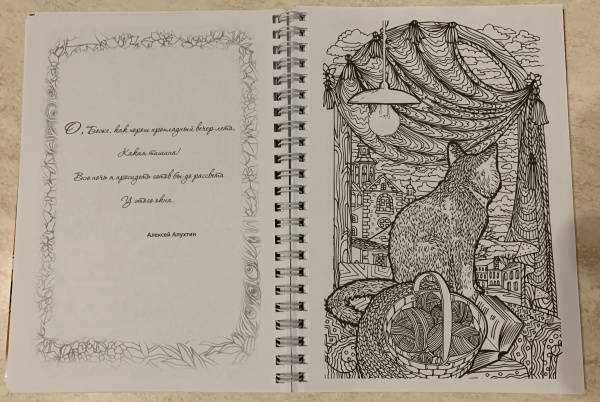 О, Боже, как хорош прохладный вечер лета,
Какая тишина!
Всю ночь я просидеть готов бы до рассвета
У этого окна.
Алексей Апухтин